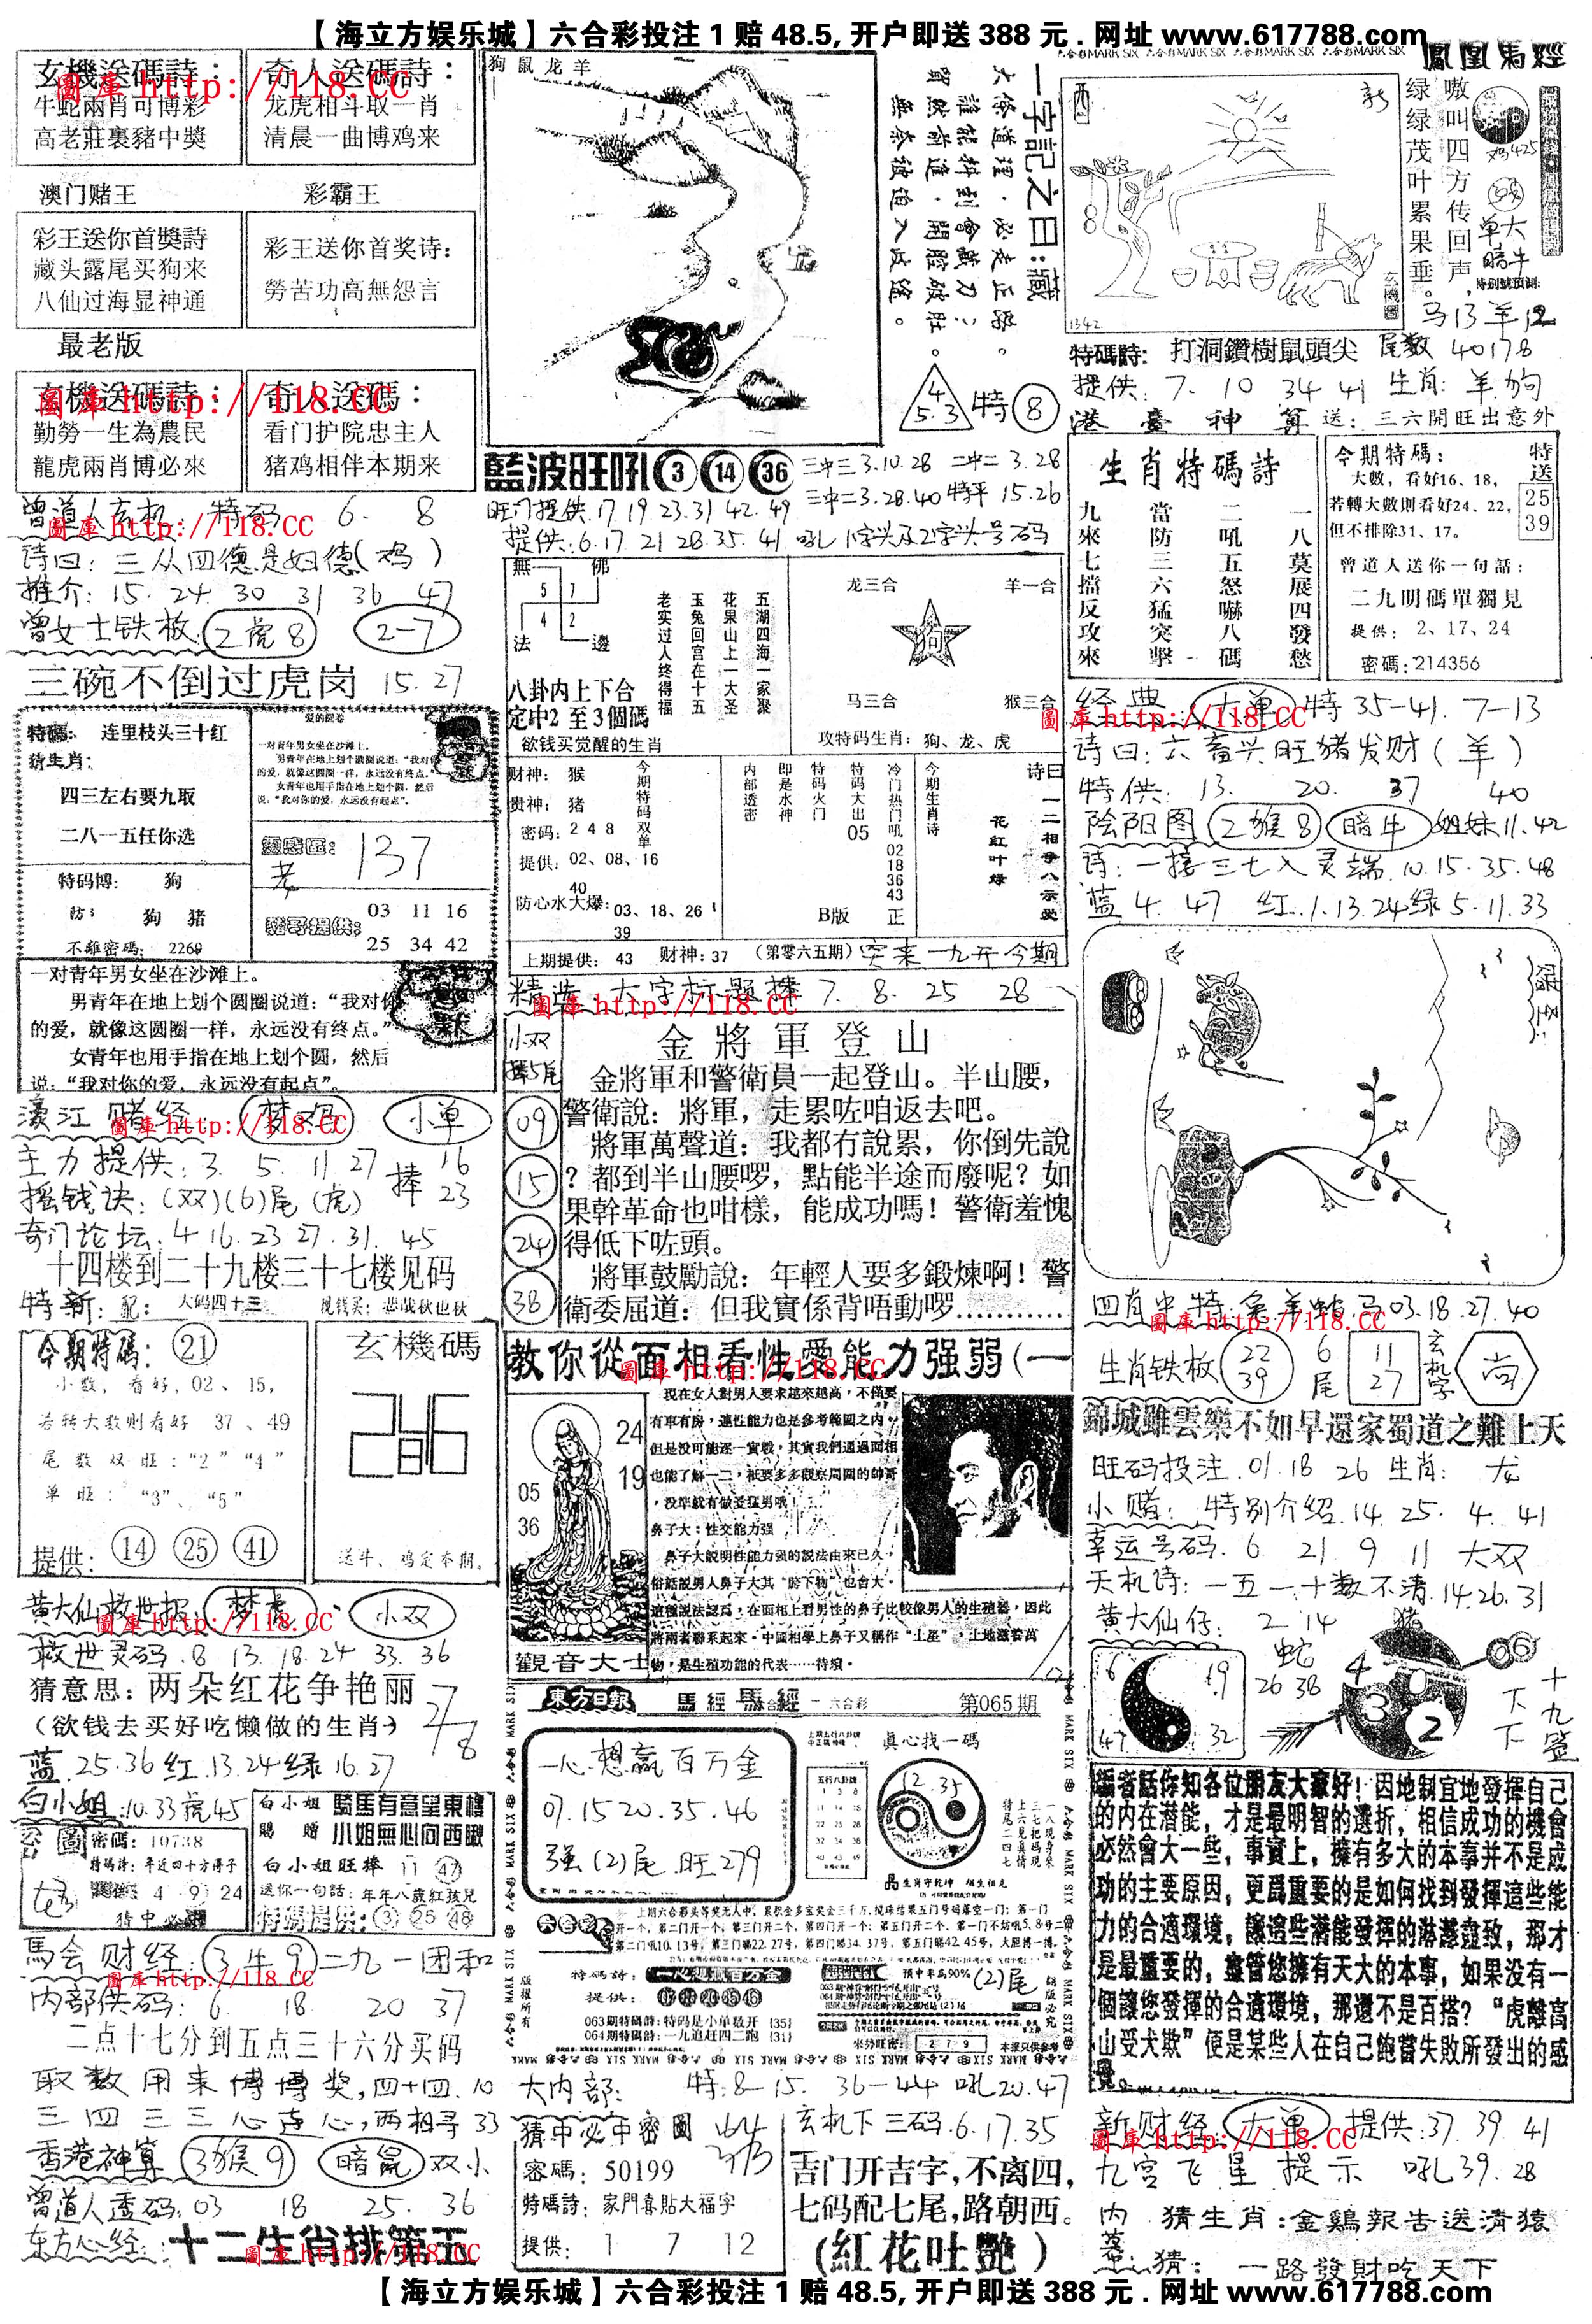 【海立方娱乐城】六合彩投注1赔48.5,开户即送388元.网址www.617788.com
玄機送碼詩：
牛蛇兩肖可博彩
高老莊裏豬中獎
奇人送碼詩：
龙虎相斗取一肖
清晨一曲博鸡来
圖庫 http://118.CC
澳门赌王
彩王送你首獎詩
藏头露尾买狗来
八仙过海显神通
彩霸王
彩王送你首奖诗：
勞苦功高無怨言
最老版
玄機送碼詩：
勤勞一生為農民
龍虎兩肖博必來
奇人送碼：
看门护院忠主人
猪鸡相伴本期来
圖庫 http://118.CC
曾道人玄机：特码 6. 8
圖庫 http://118.CC
诗曰：三从四德是妇德(鸡)
推介：15. 24. 30 31 36 47
曾女士铁板 2虎8 2-7
三碗不倒过虎岗 15.27
特碼： 连里枝头三十红
猜生肖：
四三左右要九取
二八一五任你选
特码博： 狗
防： 狗 猪
不離密碼： 2269
137
03 11 16
25 34 42
一对青年男女坐在沙滩上。
男青年在地上划个圆圈说道：“我对你
的爱，就像这圆圈一样，永远没有终点。”
女青年也用手指在地上划个圆，然后
说：“我对你的爱，永远没有起点”。
濠江赌经 小单
圖庫 http://118.CC
主力提供：3. 5. 11. 27 捧 16 23
摇钱诀：(双)(6)尾(虎)
奇门论坛．4 16. 23 27. 31. 45
十四楼到二十九楼三十七楼见码
特新：配： 大码四十三
今期特碼：21
小数，看好，02、15，
若转大数则看好 37、49
尾数双旺：“2”“4”
单旺：“3”、“5”
提供：14 25 41
玄機碼
送牛、鸡定本期。
黄大仙救世报 梦虎 小双
圖庫 http://118.CC
救世灵码．8 13. 18. 24 33. 36
猜意思：两朵红花争艳丽
(欲钱去买好吃懒做的生肖)
蓝．25.36 红．13.24 绿 16.27
白小姐：10.33 虎45
密碼：10738
特碼詩：年近四十方得子
4 9 24
猜中必
白小姐 騎馬有意望東樓
賜贈 小姐無心向西瞰
白小姐旺捧 11 47
送你一句話：年年八歲紅孩兒
特碼提供：3 25 48
馬会财经：3牛9 二九一团和
圖庫 http://118.CC
内部供码：6. 18 20 37
二点十七分到五点三十六分买码
取数用来博博奖，四十四．10
三四三三心连心，两相寻 33
香港神算 3猴9 暗鼠 双小
曾道人透码：03 18 25. 36
东方心经：十二生肖排第五
圖庫 http://118.CC
狗鼠龙羊
一字記之曰：藏
大條道理，必走正路。
誰能料到會藏刀；
貿然前進，開膛破肚。
無奈被迫入歧途。
4
5.3
特 8
藍波旺吼 3 14 36
三中三 3.10.28 二中二 3.28
三中二 3.28.40 特平 15.26
旺门提供．17 19 23.31 42.49
提供：6.17 21 28.35. 41. 吼1字头及2字头号码
無 佛
5 7
4 2
法 邊
八卦内上下合
定中2 至3個碼
欲钱买觉醒的生肖
五湖四海一家聚
花果山上一大圣
玉兔回宫在十五
老实过人终得福
龙三合 羊一合
狗
马三合 猴三合
攻特码生肖：狗、龙、虎
财神：猴
贵神：猪
密码：2 4 8
提供：02、08、16
40
防心水大爆：03、18、26
39
今期特码双单
内部透密
即是水神
特码火门
特码大出 05
冷门热门吼 02 18 36 43
B版 正
今期生肖诗
诗曰
花红叶绿
上期提供：43 财神：37 (第零六五期) 突来一九开今期
精选 大字标题捧 7. 8. 25 28
圖庫 http://118.CC
小双
捧5尾
09
15
24
38
金將軍登山
金將軍和警衛員一起登山。半山腰，
警衛說：將軍，走累咗咱返去吧。
將軍萬聲道：我都冇說累，你倒先說
？都到半山腰啰，點能半途而廢呢？如
果幹革命也咁樣，能成功嗎！警衛羞愧
得低下咗頭。
將軍鼓勵說：年輕人要多鍛煉啊！警
衛委屈道：但我實係背唔動啰…………
教你從面相看性愛能力强弱(一
圖庫 http://118.CC
24
19
05
36
觀音大士
現在女人對男人要求越來越高，不僅要
有車有房，連性能力也是參考範圍之内，
但是没可能逐一實戰，其實我們通過面相
也能了解一二，祇要多多觀察周圍的帥哥
，没準就有做爱猛男哦！
鼻子大：性交能力强
鼻子大說明性能力强的説法由來已久，
俗話說男人鼻子大其“胯下物”也合大。
這種説法認爲，在面相上看男性的鼻子比較像男人的生殖器，因此
將兩者聯系起來。中國相學上鼻子又稱作“土星”，土地滋養萬
物，是生殖功能的代表……待續。
東方日報 馬經 馬經 六合彩 第065期
一心想赢百万金
07.15 20.35.46
强(2)尾．旺279
真心找一碼
12.35
上期六合彩头等奖无人中，累积金多宝奖金三千万，
特碼詩：一心想贏百万金
提供：07 15 20 35 46
063期特碼詩：特码是小单数开 [35]
064期特碼詩：一九追赶四二跑 [31]
預中率高90% (2)尾
來勢旺密：2 7 9 本报只供參考
版權所有 翻版必究
大内部： 特：8—15. 36—44 吼20.47
猜中必中密圖
密碼：50199
特碼詩：家門喜貼大福字
提供：1 7 12
玄机下三码．6.17.35
吉门开吉字，不离四，
七码配七尾，路朝西。
(紅花吐艷)
六合彩MARK SIX
鳳凰馬經
西
新
1342
玄機圖
嗷叫四方传回声，
绿绿茂叶累果垂。
鸡425
单大
暗牛
特别號預測：
马13 羊12
特碼詩：打洞鑽樹鼠頭尖 尾数 40178
提供：7. 10 34 41 生肖：羊狗
港臺神算 送：三六開旺出意外
生肖特碼詩
一八莫展四發愁
二吼五怒嚇八碼
當防三六猛突擊
九來七擋反攻來
今期特碼：
大數，看好16、18，
若轉大數則看好24、22，
但不排除31、17。
特送
25
39
曾道人送你一句話：
二九明碼單獨見
提供：2、17、24
密碼：214356
经典 大单 特 35—41. 7—13
圖庫 http://118.CC
诗曰：六畜兴旺猪发财(羊)
特供：13. 20. 37 40
陰阳图 2猴8 暗牛 姐妹 11.42
诗：一接三七入灵端．10.15.35.48
蓝 4. 47 红．1.13.24 绿 5.11.33
四肖中特：兔羊蛇马 03.18.27.40
圖庫 http://118.CC
生肖铁板 22 39 6尾 11 27 玄机字 尚
錦城雖雲樂不如早還家蜀道之難上天
旺码投注．01.18 26 生肖：龙
小赌：特别介绍．14. 25. 4. 41
幸运号码．6 21 9 11 大双
天机诗：一五一十数不清．14.26.31
黄大仙仔：2. 14
6 19
47 32
蛇
26 38
猪
4 0
3 2
06
十九噬
下下
編者話你知各位朋友大家好！因地制宜地發揮自己
的内在潜能，才是最明智的選折，相信成功的機會
必然會大一些，事實上，擁有多大的本事并不是成
功的主要原因，更爲重要的是如何找到發揮這些能
力的合適環境，讓這些潜能發揮的淋漓盡致，那才
是最重要的，盡管您擁有天大的本事，如果没有一
個讓您發揮的合適環境，那還不是百搭？“虎離高
山受犬欺”便是某些人在自己飽嘗失敗所發出的感
覺。
新财经：大单 提供：37. 39. 41
圖庫 http://118.CC
九宫飞星提示 吼39.28
内幕
猜生肖：金鷄報告送清猿
猜：一路發財吃天下
【海立方娱乐城】六合彩投注1赔48.5,开户即送388元.网址www.617788.com